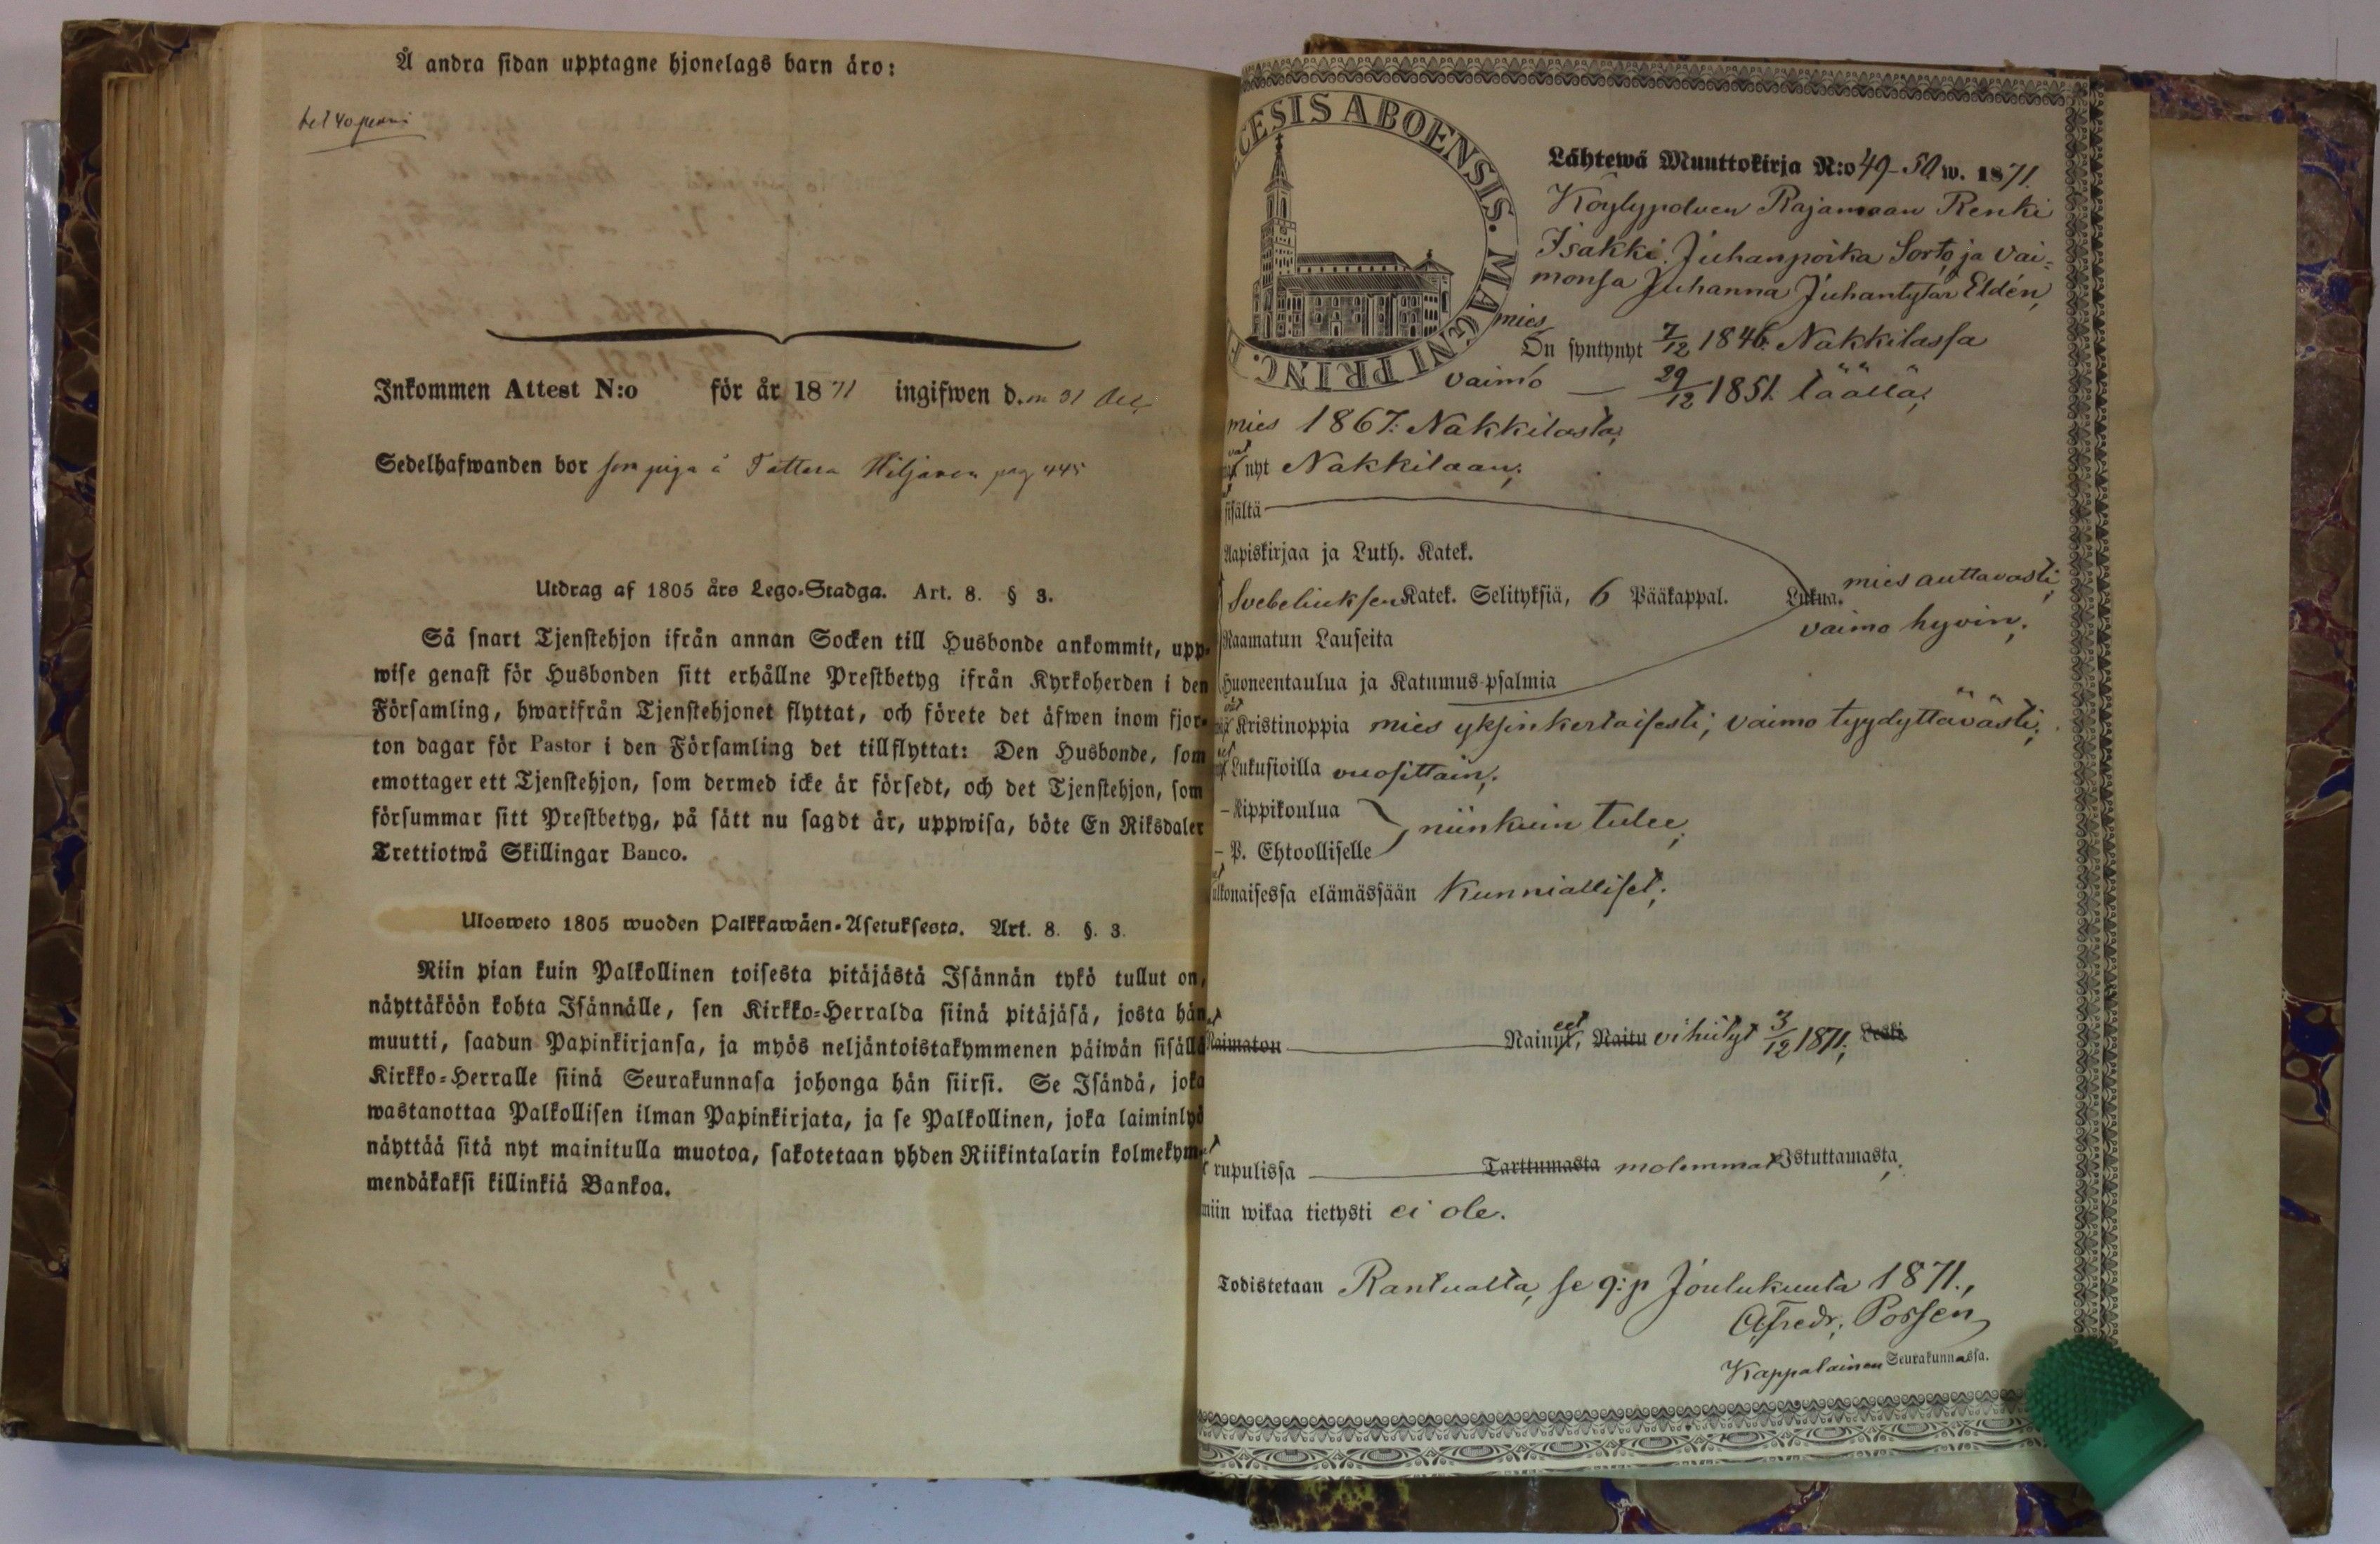 Å andra sidan upptagne hjonelags barn äro:
Inkommen Attest N:o för år 1871 ingifwen d.en 31 Dec
Sedelhafwanden bor som piga å Tattera Hiljanen pag 445
Utdrag af 1805 års Lego-Stadga. Art. 8. § 3.
Så snart Tjenstehjon ifrån annan Socken till Husbonde ankommit, upp-
wise genast för Husbonden sitt erhållne Prestbetyg ifrån Kyrkoherden i den
Församling, hwarifrån Tjenstehjonet flyttat, och förete det äfwen inom fjor-
ton dagar för Pastor i den Församling det tillflyttat: Den Husbonde, som
emottager ett Tjenstehjon, som dermed icke är försedt, och det Tjenstehjon, som
försummar sitt Prestbetyg, på sätt nu sagdt är, uppwisa, böte En Riksdaler
Trettiotwå Skillingar Banco.
Ulosweto 1805 wuoden Palkkawäen-Asetuksesta. Art. 8. §. 3.
Niin pian kuin Palkollinen toisesta pitäjästä Isännän tykö tullut on,
näyttäköön kohta Isännälle, sen Kirkko-Herralda siinä pitäjäsä, josta hän
muutti, saadun Papinkirjansa, ja myös neljäntoistakymmenen päiwän sisällä
Kirkko-Herralle siinä Seurakunnasa johonga hän siirsi. Se Isändä, joka
wastanottaa Palkollisen ilman Papinkirjata, ja se Palkollinen, joka laiminlyö
näyttää sitä nyt mainitulla muotoa, sakotetaan yhden Riikintalarin kolmekym-
mendäkaksi killinkiä Bankoa.
CESIS ABOENSIS. MAGNI PRINC. F
Lähtewä Muuttokirja N:o 49-50 w. 1871.
Köylypolwen Rajamaan Renki
Isakki Juhanpoika Sorto ja vai-
monsa Juhanna Juhantytär Eldén,
mies
On syntynyt 7/12 1846. Nakkilassa
vaimo — 29/12 1851. täällä;
mies 1867: Nakkilasta;
nyt Nakkilaan;
sisältä
Aapiskirjaa ja Luth. Katek.
Svebeliuksen Katek. Selityksiä, 6 Pääkappal. Lukua. mies auttavasti,
vaimo hyvin;
Raamatun Lauseita
Huoneentaulua ja Katumus-psalmia
Kristinoppia mies yksinkertaisesti; vaimo tyydyttävästi;
Lukusioilla vuosittain;
– Rippikoulua
niinkuin tulee;
– P. Ehtoolliselle
ulkonaisessa elämässään Kunnialliset;
Naimaton Nainyt, eet Naitu vihityt 3/12 1871; Leski
rupulissa Tarttumasta molemmat Istuttamasta;
niin wikaa tietysti ei ole.
Todistetaan Rantualta, se 9:p Joulukuuta 1871.,
A. Fredr. Possen,
Kappalainen Seurakunnassa.